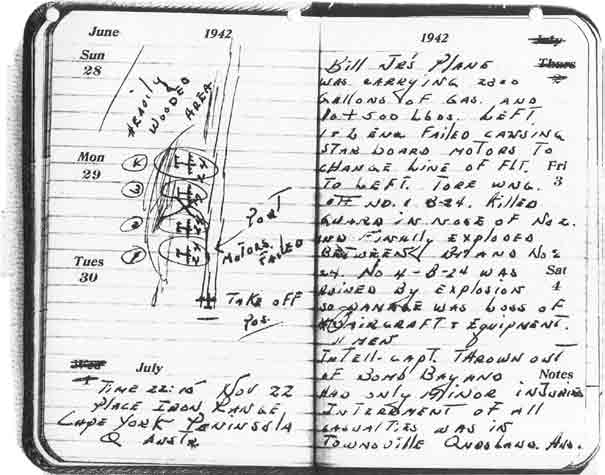 June 1942
Sun
28
HEAVILY
WOODED
AREA
Mon
29
4
3
2
1
PORT
MOTORS FAILED
Tues
30
TAKE OFF
POS.
Wed July
1
TIME 22:15 NOV 22
PLACE IRON RANGE
CAPE YORK PENINSULA
Q
1942 July
Bill JR'S PLANE Thurs
WAS CARRYING 2300 2
GALLONS OF GAS. AND
10 + 500 LBDS. LEFT
1 & 2 ENG FAILED CAUSING
STAR BOARD MOTORS TO
CHANGE LINE OF FLT. Fri
TO LEFT. TORE WNG. 3
OFF NO. 1 B-24. KILLED
GUARD IN NOSE OF No 2.
AND FINALLY EXPLODED
BETWEEN AND No 2
24. NO 4-B-24 WAS Sat
RUINED BY EXPLOSION 4
SO DAMAGE WAS LOSS OF
AIRCRAFT & EQUIPMENT.
11 MEN
INTELL-CAPT. THROWN OUT
OF BOMB BAY AND Notes
HAD ONLY MINOR INJURIES
INTERNMENT OF ALL
CASUALTIES WAS IN
TOWNSVILLE QNDSLAND. AUS.